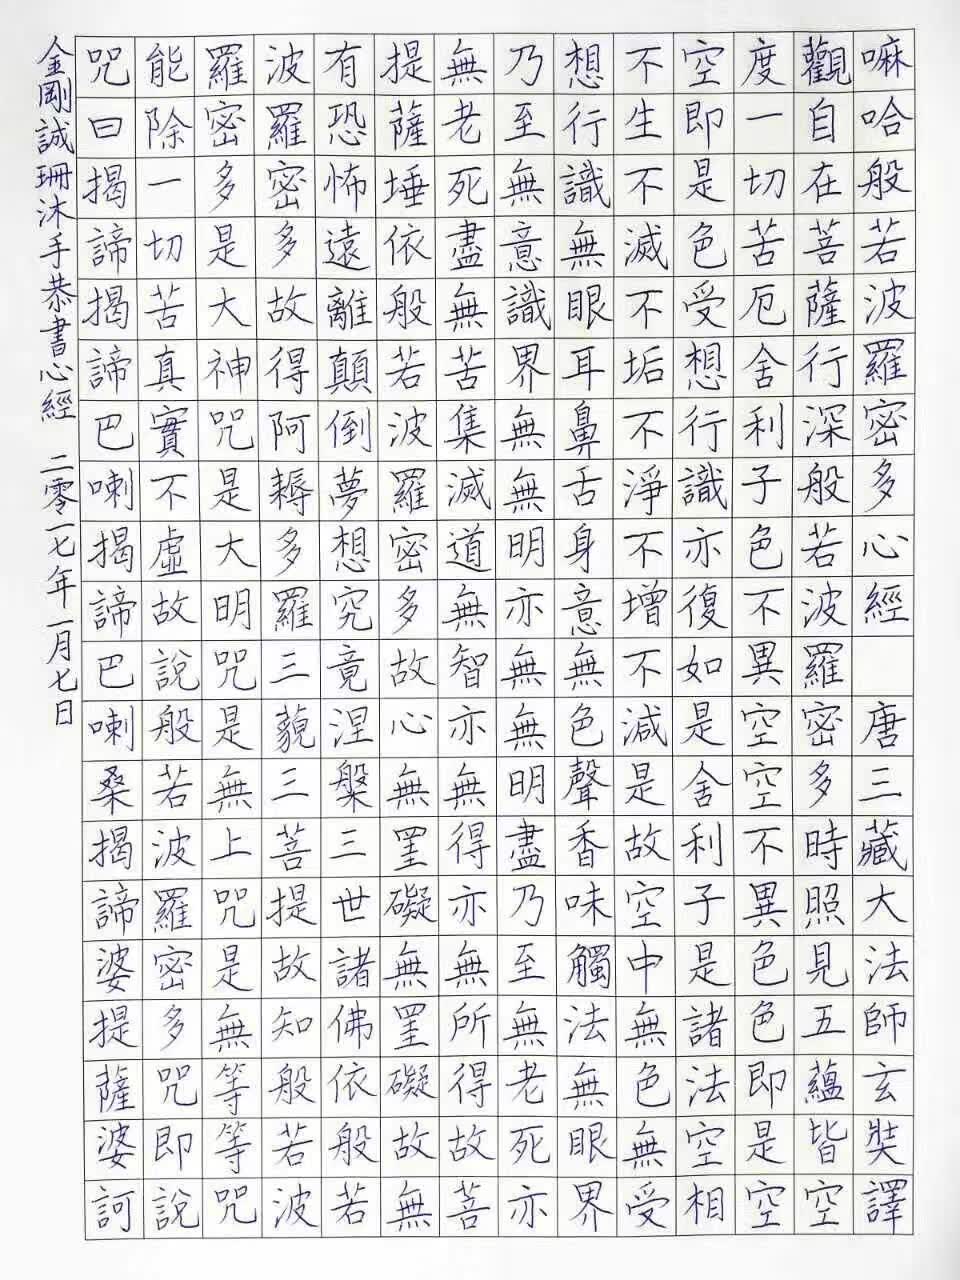 嘛哈般若波羅密多心經 唐三藏大法師玄奘譯
觀自在菩薩行深般若波羅密多時照見五蘊皆空
度一切苦厄舍利子色不異空空不異色色即是空
空即是色受想行識亦復如是舍利子是諸法空相
不生不滅不垢不淨不增不減是故空中無色無受
想行識無眼耳鼻舌身意無色聲香味觸法無眼界
乃至無意識界無無明亦無無明盡乃至無老死亦
無老死盡無苦集滅道無智亦無得亦無所得故菩
提薩埵依般若波羅密多故心無罣礙無罣礙故無
有恐怖遠離顛倒夢想究竟涅槃三世諸佛依般若
波羅密多故得阿耨多羅三藐三菩提故知般若波
羅密多是大神咒是大明咒是無上咒是無等等咒
能除一切苦真實不虛故說般若波羅密多咒即說
咒曰揭諦揭諦巴喇揭諦巴喇桑揭諦婆提薩婆訶
金剛誠珊沐手恭書心經 二零一七年一月七日